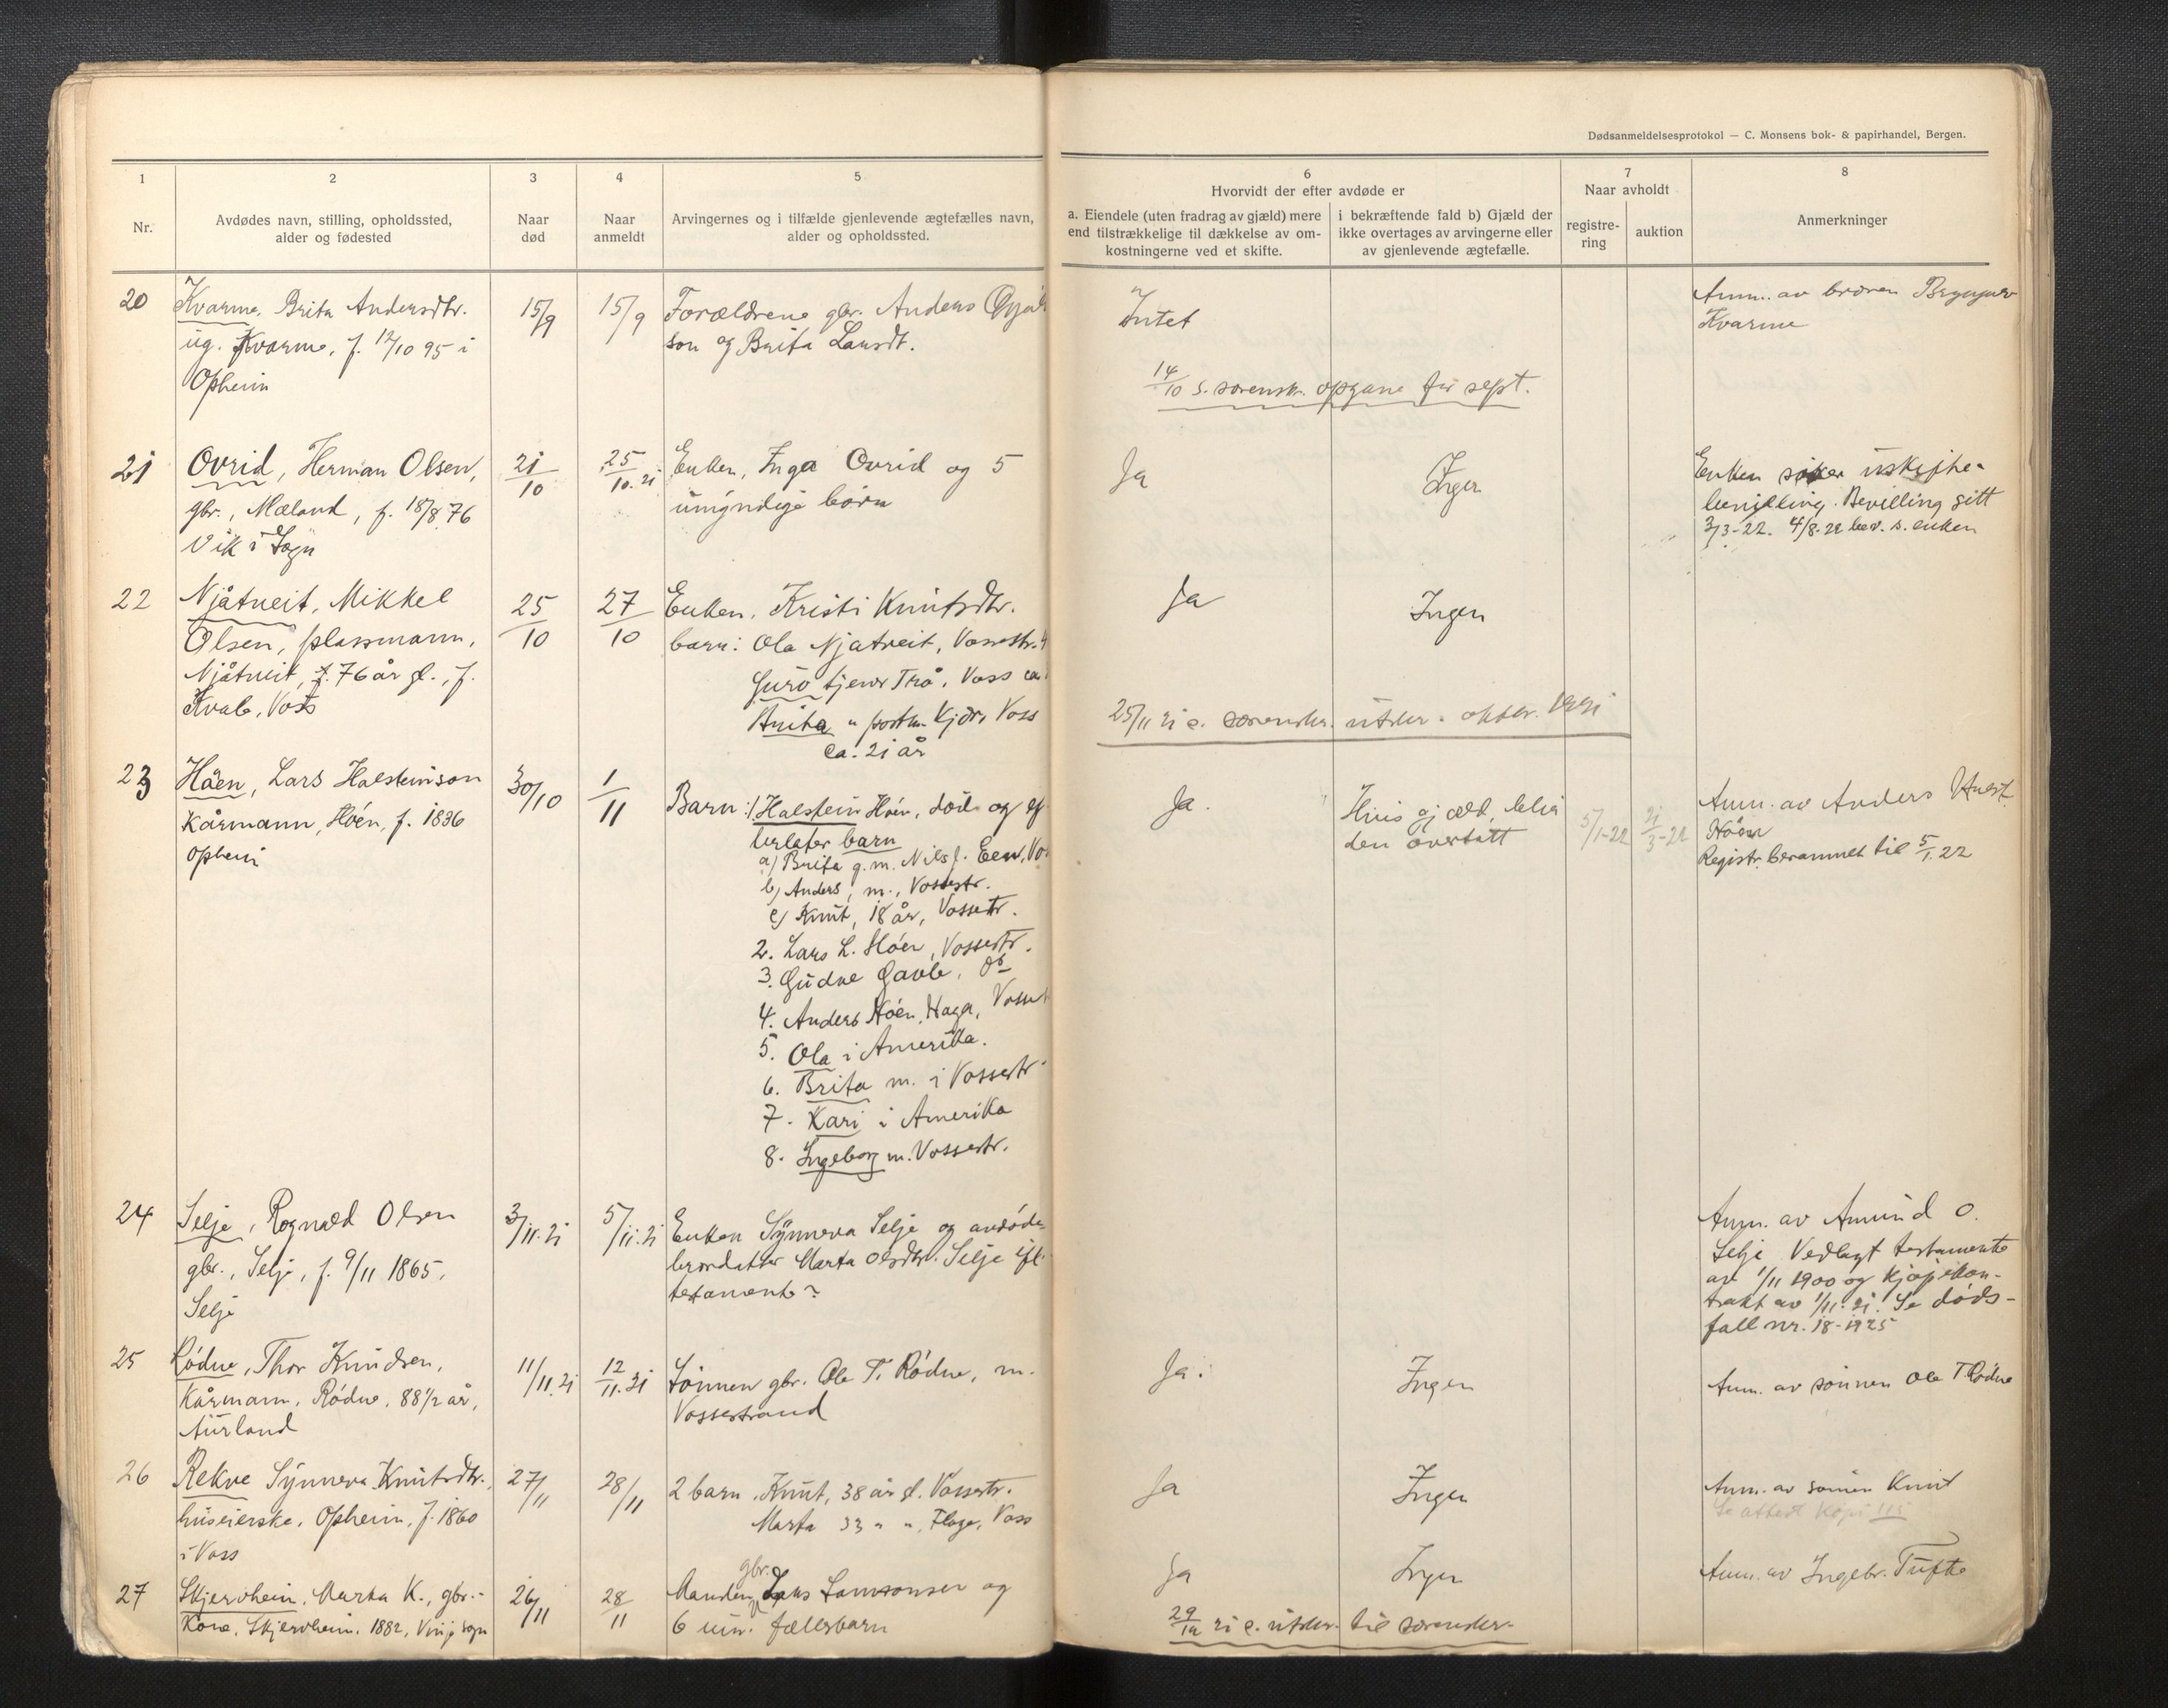 Dødsanmeldelsesprotokol — C. Monsens bok- & papirhandel, Bergen.
1
2
3
4
5
6
7
8
Nr.
Avdødes navn, stilling, opholdssted,
alder og fødested
Naar
død
Naar
anmeldt
Arvingernes og i tilfælde gjenlevende ægtefælles navn,
alder og opholdssted.
Hvorvidt der efter avdøde er
a. Eiendele (uten fradrag av gjæld) mere
end tilstrækkelige til dækkelse av om-
kostningerne ved et skifte.
i bekræftende fald b) Gjæld der
ikke overtages av arvingerne eller
av gjenlevende ægtefælle.
Naar avholdt
registre-
ring
auktion
Anmerkninger
20
Kvarme, Brita Andersdtr.
ug. Kvarme, f. 12/10 95 i
Opheim
15/9
15/9
Forældrene gbr. Anders
son og Brita Larsdt.
Intet
Anm. av broren Brynjulv
Kvarme
14/10 s. sorensk. opgave for sept.
21
Ovrid, Herman Olsen,
gbr., Mæland, f. 18/8 76
Vik i Sogn
21/10
25/10. 21
Enken, Inga Ovrid og 5
umyndige børn
Ja
Ingen
Enken søker uskifte-
bevilling. Bevilling gitt
3/3-22. 4/8-22 bev. s. enken
22
Njåtveit, Mikkel
Olsen, plassmann,
Njåtveit, 76 år gl., f.
Kvale, Voss
25/10
27/10
Enken, Kristi Knutsdtr.
barn: Ola Njatveit, Vossestr.
Guro tjener Trå, Voss ca
Anita " postm. Kjør, Voss
ca. 21 år
Ja
Ingen
25/11 21 s. sorenskr. utskr. oktbr. 1921
23
Håen, Lars Halsteinson
Kårmann, Høen, f. 1836
Opheim
30/10
1/11
Barn: 1/ Halstein Høen, død og ef
terlater barn
a) Brita g.m. Nils J. Een, Vo
b) Anders, m., Vossestr.
c) Knut, 18 år, Vossestr.
2. Lars L. Høen, Vossestr.
3. Gudve Gavle, do
4. Anders Høen, Haga, Vosse
5. Ola i Amerika.
6. Brita m. i Vossestr.
7. Kari i Amerika
8. Ingeborg m. Vossestr.
Ja.
Hvis gjæld, blir
den overtatt
5/1-22
21/3-22
Anm. av Anders
Høen
Registr. berammet til 5/1. 22
24
Selje, Rognald Olsen
gbr., Selje, f. 9/11 1865,
Selje
3/11. 21
5/11. 21
Enken Synneva Selje og avdøde
brordatter Marta Olsdtr. Selje ifl.
testamente?
Anm. av Amund O.
Selje Vedlagt testamente
av 1/11 1900 og kjøpekon-
trakt av 1/11. 21. Se døds-
fall nr. 18-1925
25
Rødne, Thor Knudsen,
Kårmann, Rødne, 88½ år,
Aurland
11/11. 21
12/11. 21
Sønnen gbr. Ole T. Rødne, m.
Vossestrand
Ja.
Ingen
Anm. av sønnen Ole T. Rødne
26
Rekve Synneva Knutsdtr.,
huseierske, Opheim, f. 1860
i Voss
27/11
28/11
2 barn, Knut, 38 år gl. Vossestr.
Marta 33 " ", Flage, Voss
Ja
Ingen
Anm. av sønnen Knut
Se attest kopi 115
27
Skjervheim, Marta K., gbr.-
Kone, Skjervheim, 1882, Vinje sogn
26/11
28/11
gbr.
Manden, Lars Samsonsen og
6 um. fællesbarn
Ja
Ingen
Anm. av Ingebr. Tufte
29/12 21 s. utskr. til sorenskr.